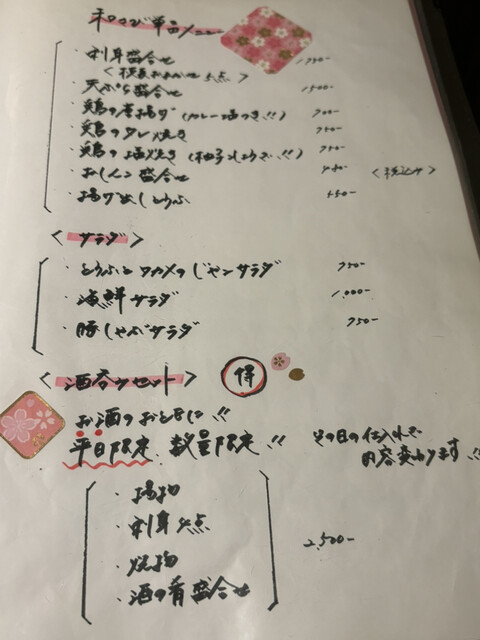 和わび単品メニュー
・刺身盛合せ
＜板長おまかせ 5点＞
・天ぷら盛合せ 1500-
・鶏の唐揚げ (カレー塩つき!!) 700-
・鶏のタレ焼き 750-
・鶏の塩焼き (柚子こしょうで!!) 750-
・おしんこ盛合せ ＜税込み＞
・揚げ出しとうふ 550-
＜サラダ＞
・とうふとワカメのじゃこサラダ 750-
・海鮮サラダ 1,000-
・豚しゃぶサラダ 750-
＜酒呑みセット＞ 得
お酒のおともに!!
平日限定、数量限定!!
その日の仕入れで
内容変わります!!
・揚物
・刺身 点
・焼物
・酒の肴盛合せ
2,500-